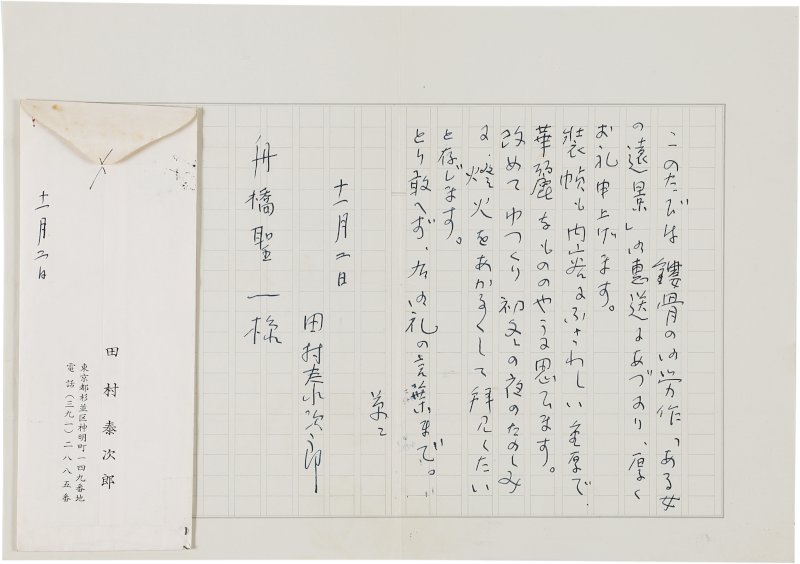 このたびは鏤骨の御労作「ある女
の遠景」御恵送にあづかり、厚く
お礼申上げます。
装幀も内容にふさわしい重厚で、
華麗なもののやうに思へます。
改めてゆつくり初冬の夜のたのしみ
に、燈火をあかるくして拝見したい
と存じます。
とり敢へず、右御礼の言葉まで。
草々
十一月二日
田村泰次郎
舟橋聖一様
十一月二日
田村泰次郎
東京都杉並区神明町一四九番地
電話(三九一)二八八五番